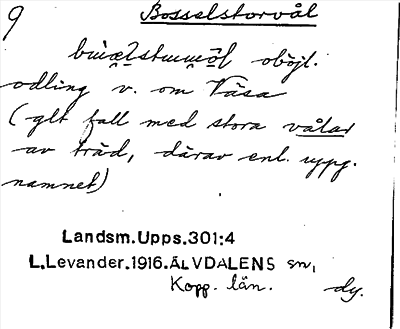 9
Bosselstorvål
oböjl.
odling v. om Väsa
(glt fall med stora vålar
av träd, därav enl. uppg.
namnet)
Landsm.Upps.301:4
L.Levander.1916.ÄLVDALENS sn,
Kopp. län.
dy.